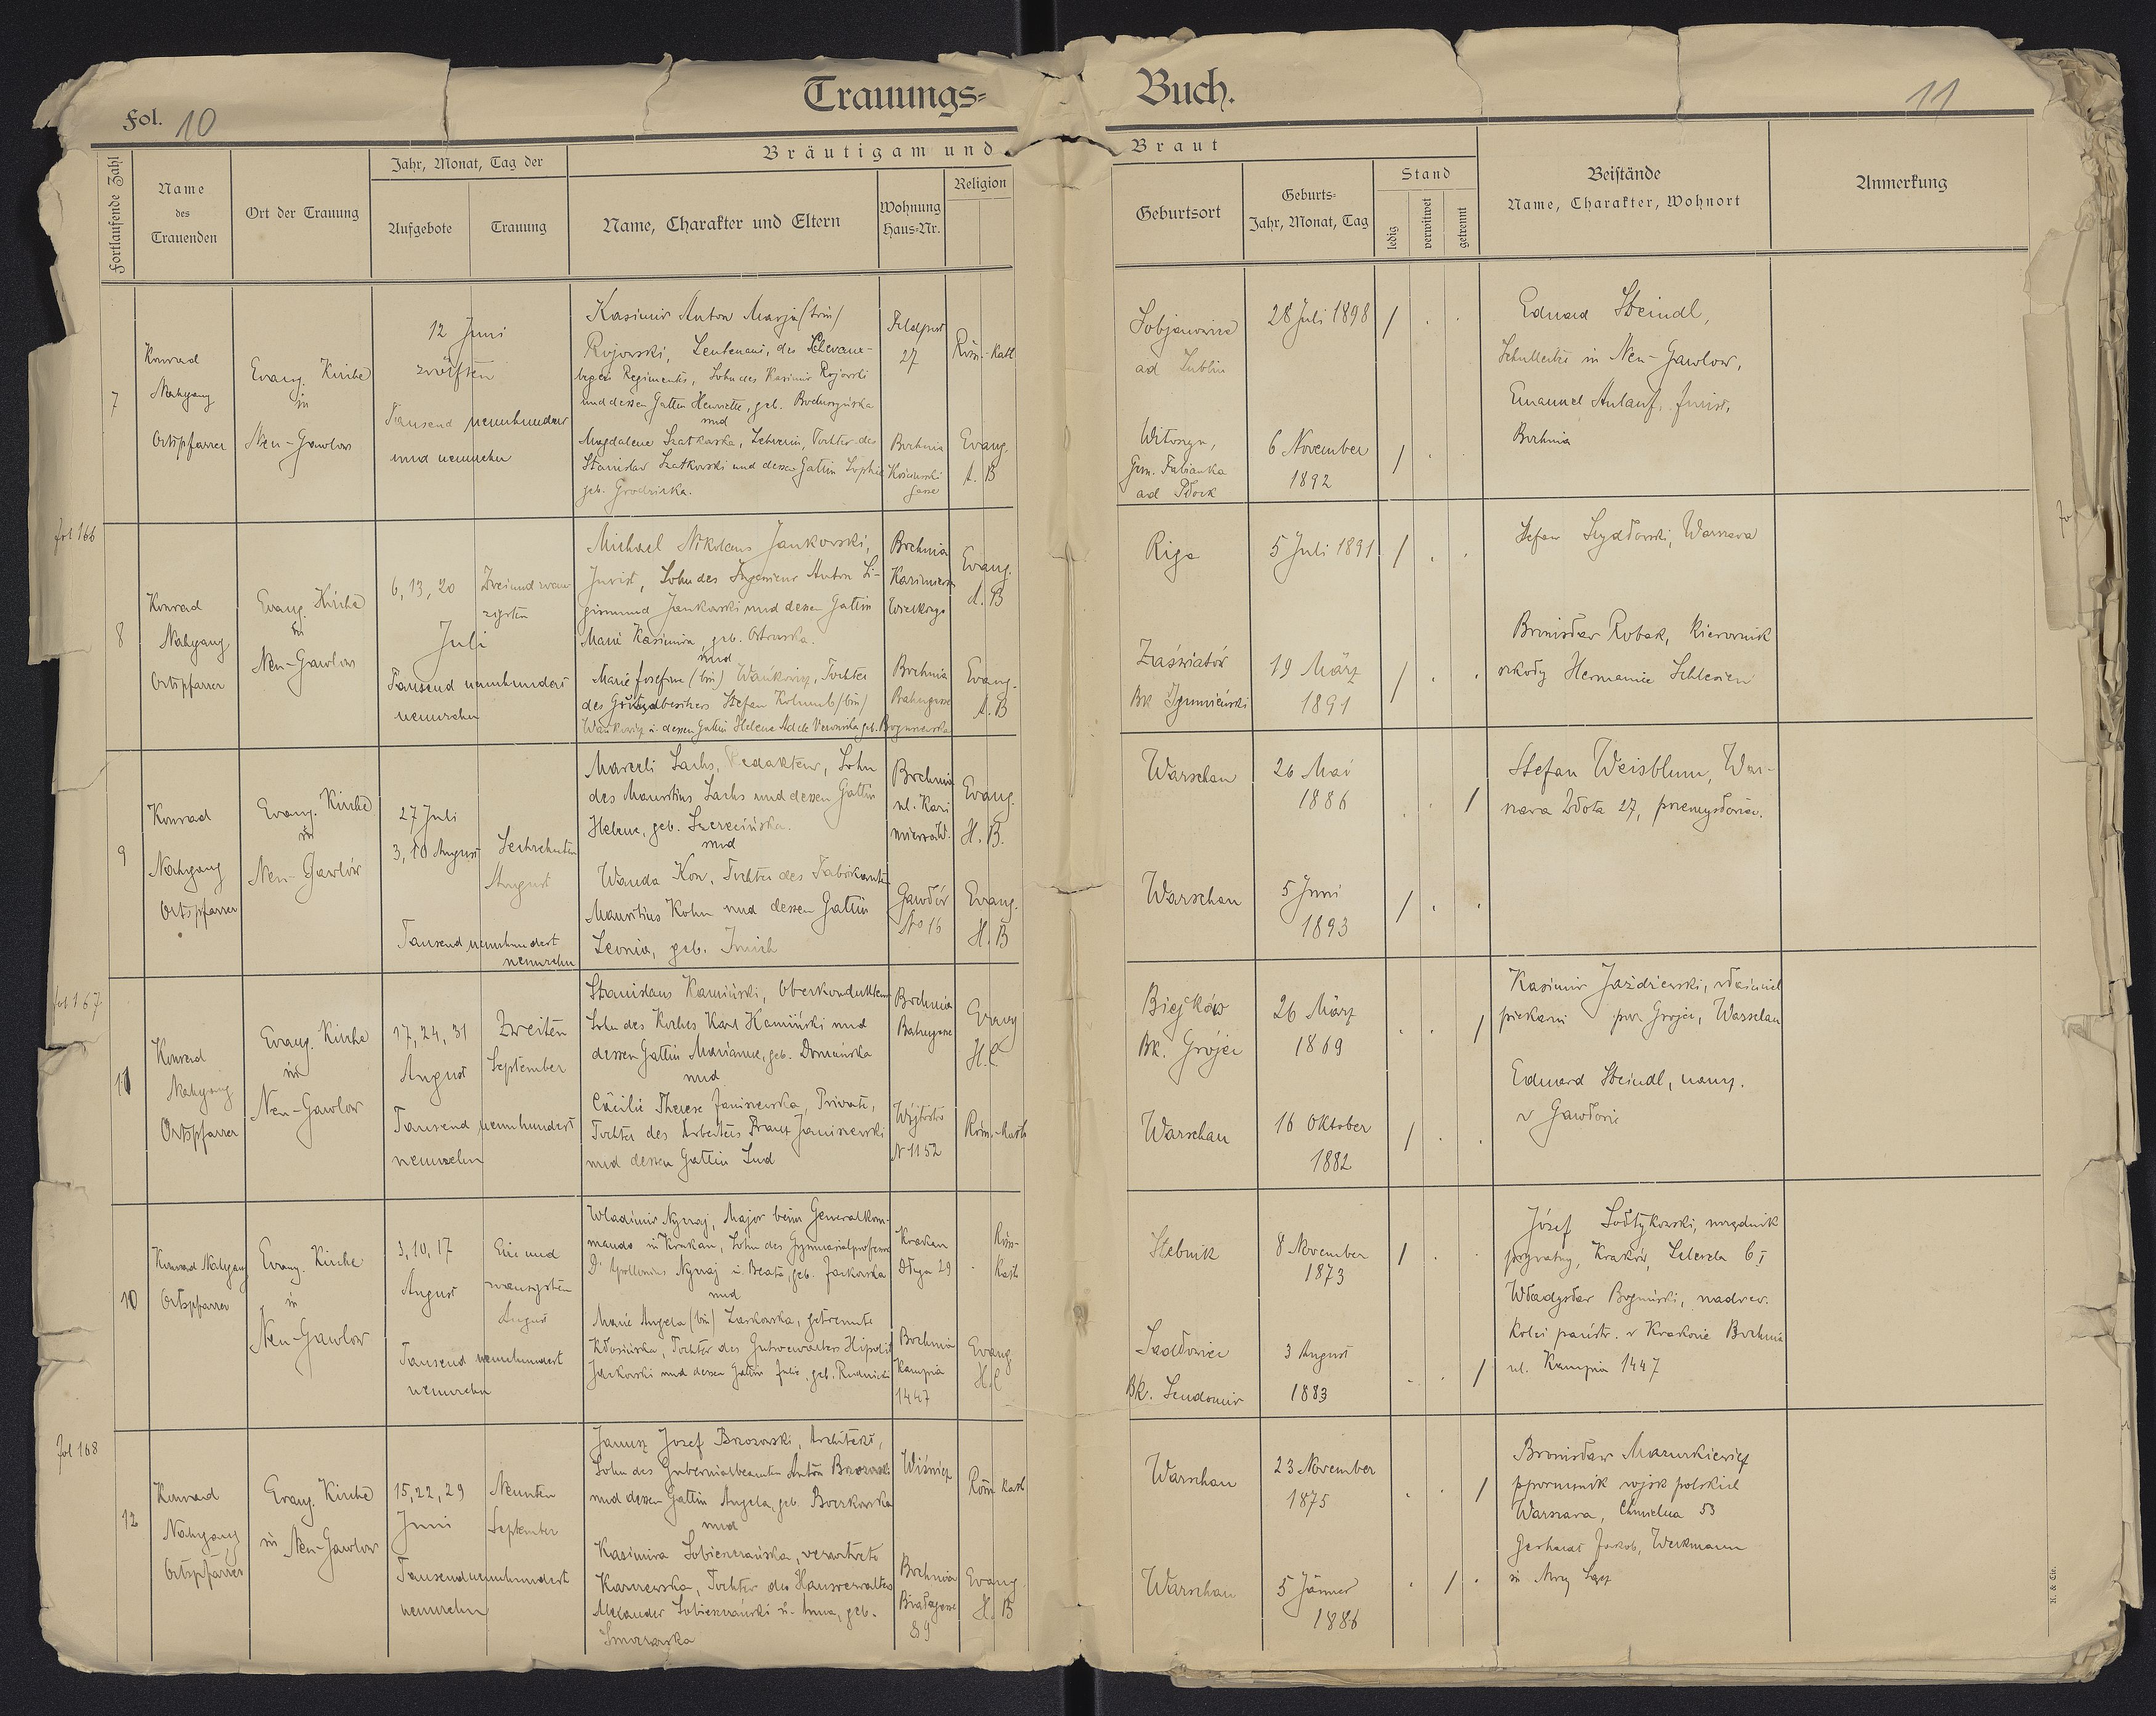 Trauungs=Buch.
Fol. 10
11
Fortlaufende Zahl
Name
des
Trauenden
Ort der Trauung
Jahr, Monat, Tag der
Aufgebote
Trauung
Bräutigam und Braut
Name, Charakter und Eltern
Wohnung
Haus=Nr.
Religion
Geburtsort
Geburts=
Jahr, Monat, Tag
Stand
ledig
verwitwet
getrennt
Beistände
Name, Charakter, Wohnort
Anmerkung
7
Konrad
Nahgang
Ortspfarrer
Evang. Kirche
in
Neu-Gawlow
12 Juni
zwölften
Tausend neunhundert
und neunzehn
Kasimir Anton Marja (trin)
Rojowski, Leutenant, des Schevaux-
legers Regiments, Sohn des Kasimir Rojowski
und dessen Gattin Henriette, geb.
und
Magdalene Szatkowska, Tochter des
Stanislav Szatkowski und dessen Gattin Sophie
geb. Grodzicka.
Feldpost
27
Bochnia
gasse
Röm.-Kath
Evang.
A. B
ad Lublin
Witoszyn,
Gem. Fabianka
ad Płock
28 Juli 1898 /
6 November
1892 /
Eduard Steindl,
in Neu-Gawlow,
Emanuel Anlauf, Jurist,
Bochnia
fol 166
8
Konrad
Nahgang
Ortspfarrer
Evang. Kirche
in
Neu-Gawlow
6, 13, 20
Zweiundzwan
zigsten
Juli
Tausend neunhundert
neunzehn
Michael Nikolaus Jankowski,
Jurist, Sohn des Ingenieur Anton Si-
gismund Jankowski und dessen Gattin
Marie Kasimira, geb. Ostrowska.
und
Marie Josefine (bin) Wańkowicz, Tochter
des Großgrundbesitzers Stefan Kolumb (bin)
Wańkowicz u. dessen Gattin Helene Adele Veronika geb. Boguszewska
Bochnia
Kazimierza
Wielkiego
Bochnia
Bahngasse
Evang.
A. B
Evang.
A. B
Riga
Zaświatów
Bk Igumieński
5 Juli 1891 /
19 März
1891 /
Stefan Szydłowski, Warszawa
Bronisław Robak, kierownik
szkoły Hermanice Schlesien
9
Konrad
Nahgang
Ortspfarrer
Evang. Kirche
in
Neu-Gawlów
27 Juli
3, 10 August
Sechzehnten
August
Tausend neunhundert
neunzehn
Marceli Sachs, Redakteur, Sohn
des Mauritius Sachs und dessen Gattin
Helene, geb.
und
Wanda Kon, Tochter des Fabrikanten
Mauritius Kohn und dessen Gattin
Leonia, geb.
Bochnia
ul. Kazi
mierza W.
Gawłów
No 16
Evang.
H. B.
Evang.
H. B
Warschau
Warschau
26 Mai
1886 /
5 Juni
1893 /
Stefan Weisblum, War-
szawa Złota 27, przemysłowiec.
fol 167
11
Konrad
Nahgang
Ortspfarrer
Evang. Kirche
in
Neu-Gawlow
17, 24, 31
August
Zweiten
September
Tausend neunhundert
neunzehn
Stanislaus Kamiński, Oberkondukteur
Sohn des Koches Karl Kamiński und
dessen Gattin Marianne, geb. Domańska
und
Cäcilie Therese Janiszewska, Private,
Tochter des Arbeiters Franz Janiszewski
und dessen Gattin Lud
Bochnia
Bahngasse
Wójtostwo
N 1152
Evang
H. C
Röm.-Kath
Biejków
Bk. Grójec
Warschau
26 März
1869 /
16 Oktober
1882 /
Kasimir Jaździewski, właściciel
piekarni pow. Grójec, Warschau
Eduard Steindl, naucz.
w Gawłowie
10
Konrad Nahgang
Ortspfarrer
Evang. Kirche
in
Neu-Gawlow
3, 10, 17
August
Ein und
zwanzigsten
August
Tausend neunhundert
neunzehn
Wladimir Nyzwaj, Major beim Generalkom-
mando in Krakau, Sohn des Gymnasialprofessor
Dr Apollonius Nyzwaj u. Beate, geb. Jackowska
und
Marie Angela (bin) getrennte
Kłosińska, Tochter des Gutsverwalters Hipolit
Jackowski und dessen Gattin Julie, geb. Rudnicki
Krakau
Długa 29
Bochnia
Kampia
1447
Röm-
Kath
Evang
H. C
Stebnik
Bk. Sandomir
8 November
1873 /
3 August
1883 /
Józef Sołtykowski, urzędnik
prywatny, Kraków, 6 I
Władysław nadrew.
kolei państw. w Krakowie Bochnia
ul. Kampia 1447
fol 168
12
Konrad
Nahgang
Ortspfarrer
Evang. Kirche
in Neu-Gawlow
15, 22, 29
Juni
Neunten
September
Tausendneunhundert
neunzehn
Janusz Josef Brzozowski, Architekt,
Sohn des Gubernialbeamten Anton Brzozowski
und dessen Gattin Angela, geb. Boczkowska
und
Kasimira Sobieszczańska, verwitwete
Karczewska, Tochter des Hausverwalters
Alexander Sobieszczański u. Anna, geb.
Wiśnicz
Bochnia
Białagasse
89
Röm Kath
Evang.
H. B
Warschau
Warschau
23 November
1875 /
5 Jänner
1886 /
Bronisław Mazurkiewicz
pporucznik wojsk polskich
Warszawa, Chmielna 53
Gerhardt Jakob, Werkmann
in Nowy Sącz
H. & Cie.